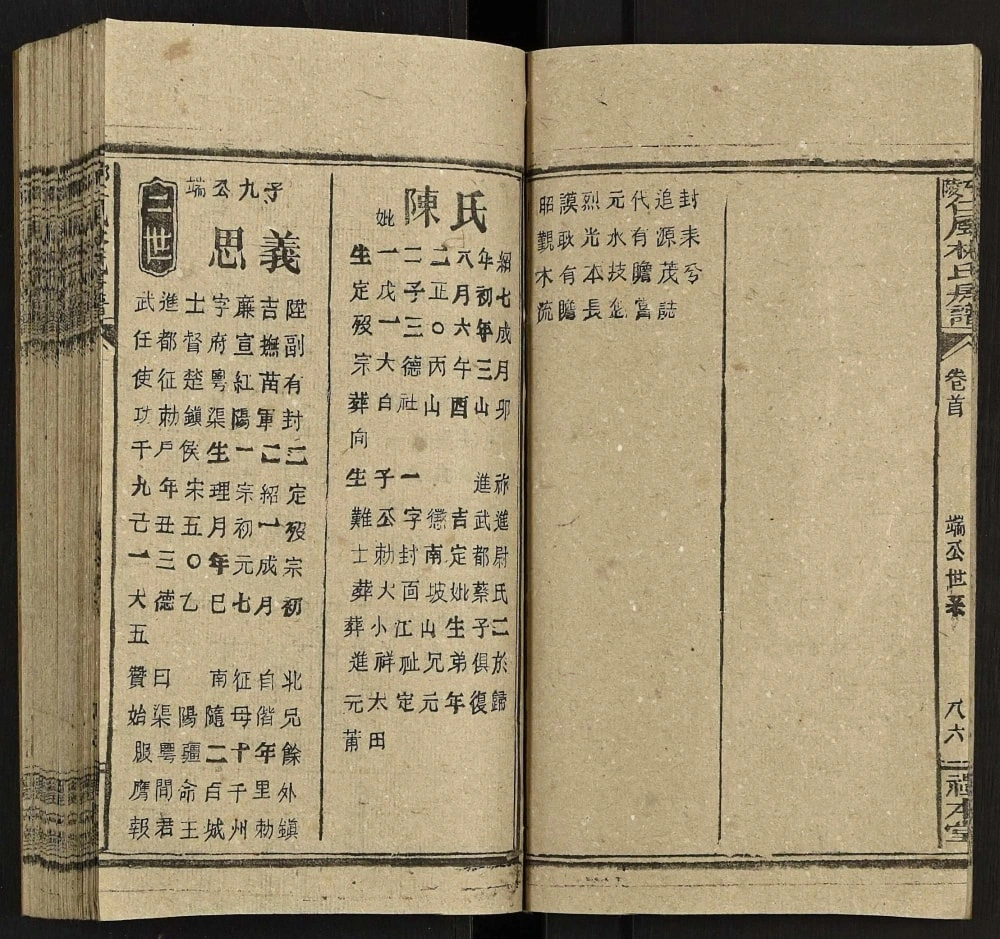 陵仁風林氏房譜
卷首
端公世系
八六
禔本堂
昭謨烈元代追封
覲耿光水有源耒
木有本技瞻茂兮
流瞻長企嘗誌
妣 陳氏
生一二二八年紹
定戊子正月初七
歿一三〇六年成
宗大德丙午三月
葬白社山酉山卯
向
生子一懲吉進祚
難公字南定武進
士勅封坡妣都尉
葬火面山生蔡氏
葬小江兄弟子二
進祥祉元年俱於
元太定元年復歸
莆田
二世
端公九子
思義
武進士字廉吉陞
任都督府宣撫副
使征楚粵紅苗有
功勅鎮渠陽軍封
千戶侯生一二二
九年宋理宗紹定
己丑五月初一歿
一三〇年元成宗
大德乙巳七月初
五
贊曰 南征自北
始渠陽隨母偕兄
服粵疆二十年餘
膺間命百千里外
報君王城州勅鎮